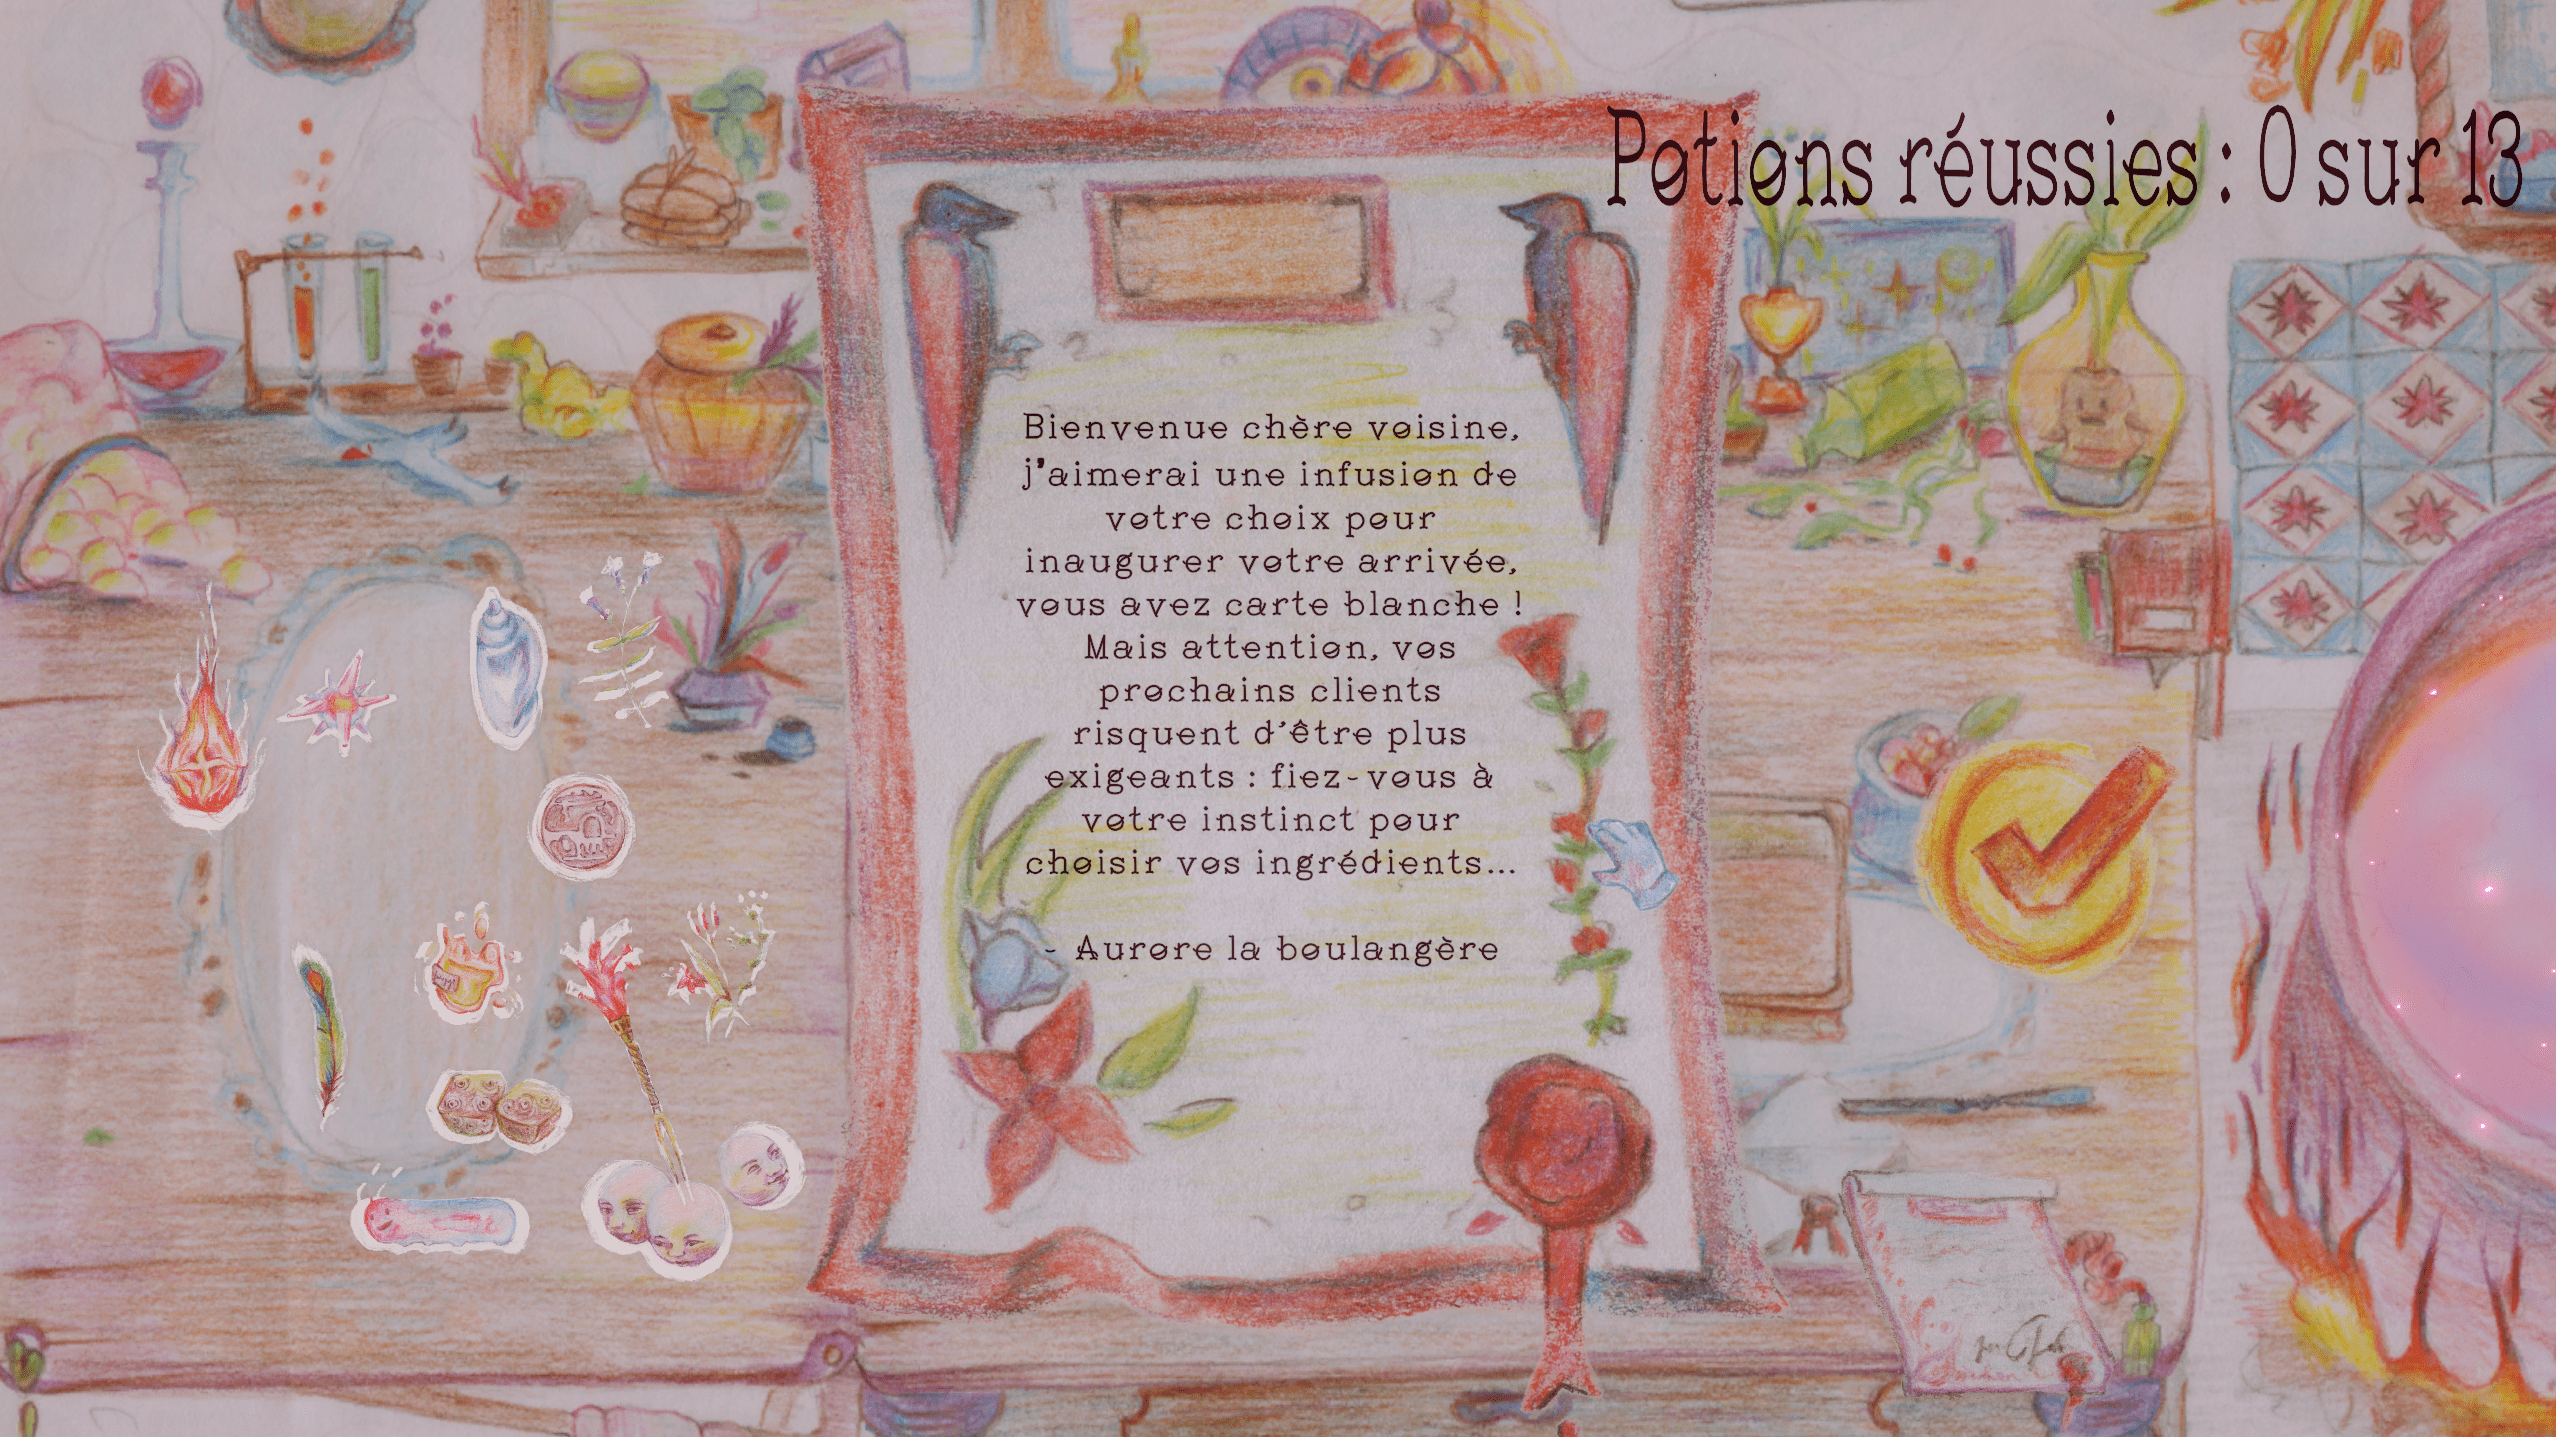 Potions réussies : 0 sur 13
Bienvenue chère voisine,
j'aimerai une infusion de
votre choix pour
inaugurer votre arrivée,
vous avez carte blanche !
Mais attention, vos
prochains clients
risquent d'être plus
exigeants : fiez-vous à
votre instinct pour
choisir vos ingrédients...
- Aurore la boulangère